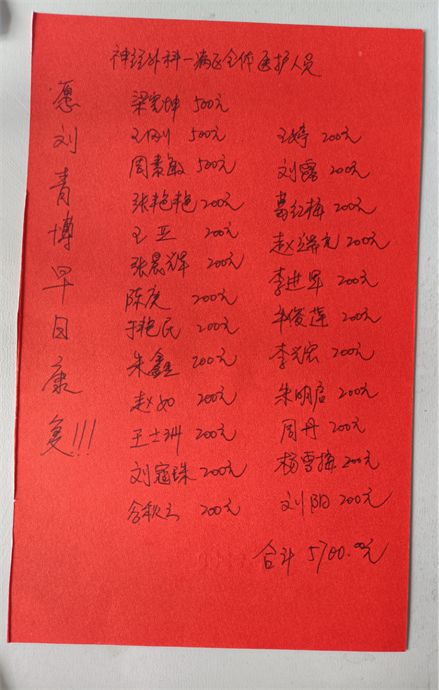 神经外科一病区全体医护人员
愿刘青博早日康复!!!
梁宪坤 500元
王刚 500元 王婷 200元
周素敏 500元 刘露 200元
张艳艳 200元 葛红梅 200元
王亚 200元 赵瑞亮 200元
张晨辉 200元 李进军 200元
陈庚 200元 牟俊莲 200元
于艳民 200元 李兴宏 200元
朱鑫 200元 朱明启 200元
赵如 200元 周丹 200元
王士洲 200元 杨雪梅 200元
刘冠珠 200元 刘阳 200元
200元
合计 5700.00元